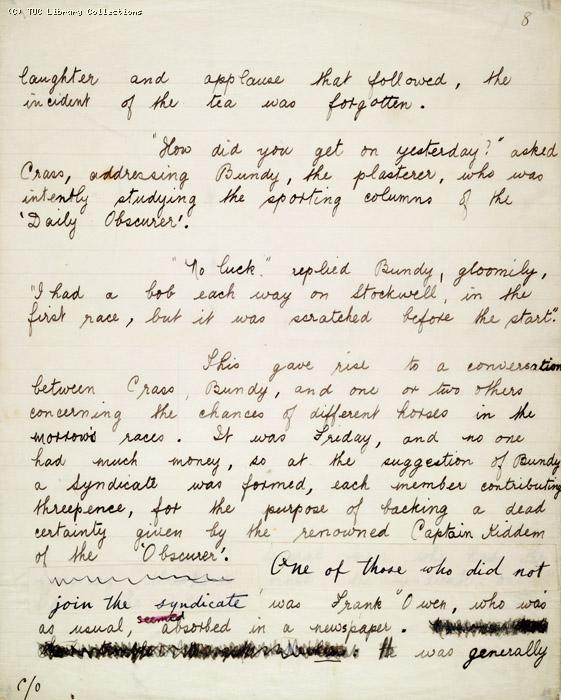 (C) TUC Library Collections
8
laughter and applause that followed, the
incident of the tea was forgotten.
"How did you get on yesterday?" asked
Crass, addressing Bundy, the plasterer, who was
intently studying the sporting columns of the
'Daily Obscurer'.
"No luck." replied Bundy, gloomily,
"I had a bob each way on Stockwell, in the
first race, but it was scratched before the start".
This gave rise to a conversation
between Crass, Bundy, and one or two others
concerning the chances of different horses in the
morrow's races. It was Friday, and no one
had much money, so at the suggestion of Bundy
a syndicate was formed, each member contributing
threepence, for the purpose of backing a dead
certainty given by the renowned Captain Kiddem
of the 'Obscurer'.
One of those who did not
join the syndicate was Frank Owen, who was
as usual, seemed absorbed in a newspaper.
He was generally
c/o